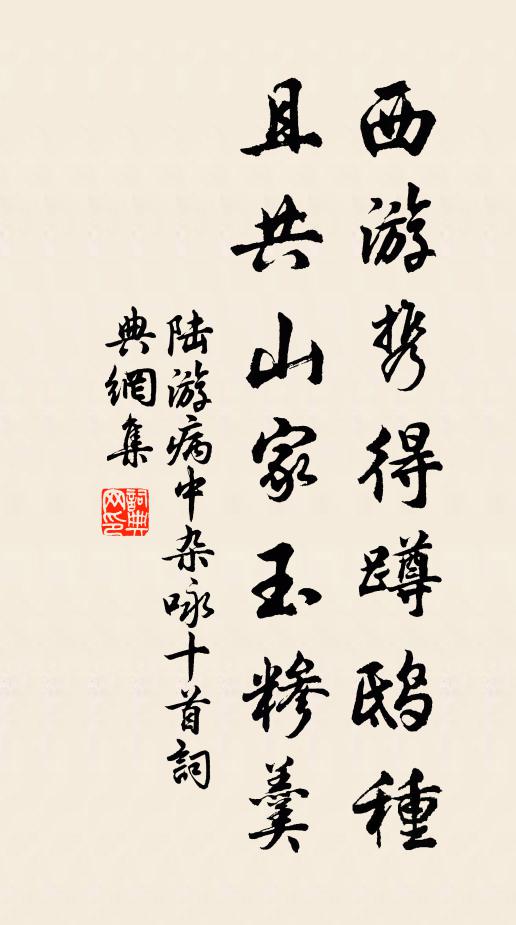 西游携得蹲鸱種
且共山家玉糁羹
陆游病中杂咏十首詞
典網集
詞典网印